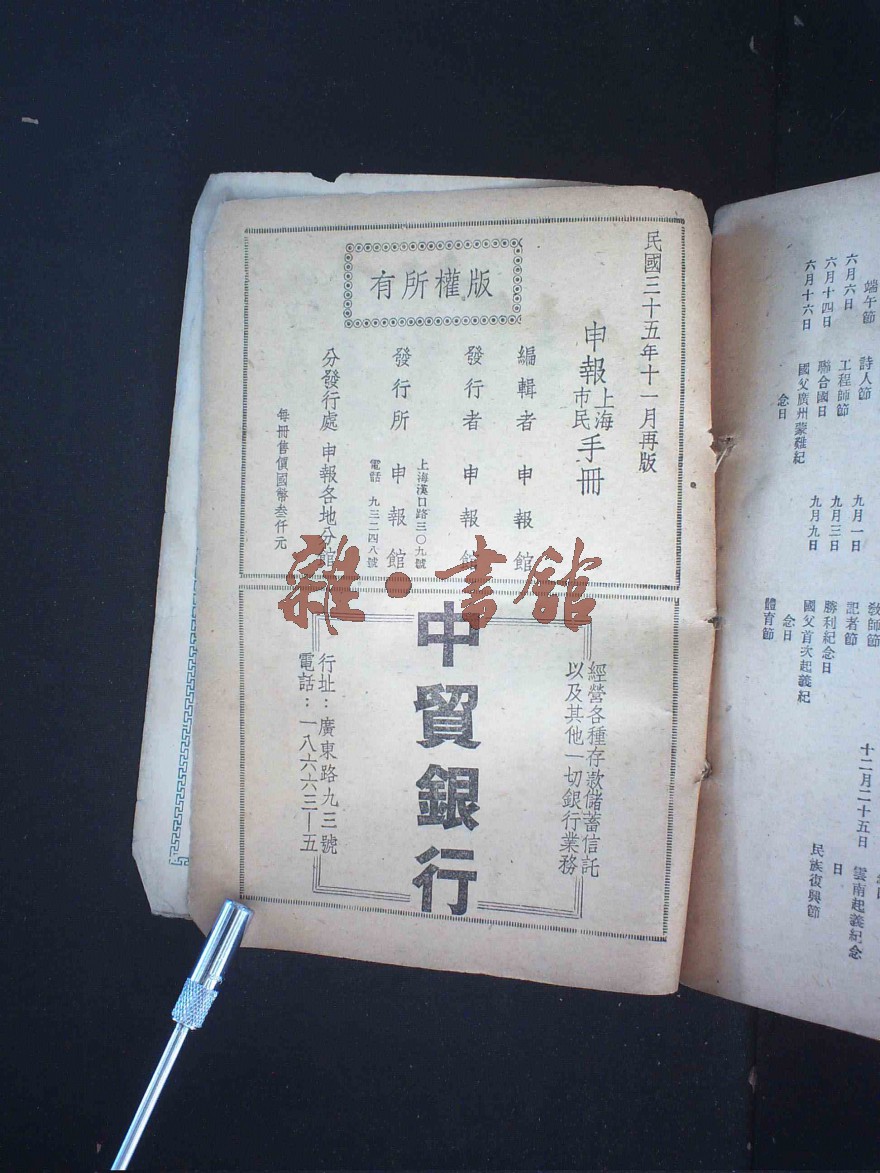 民國三十五年十一月再版
申報上海市民手冊
編輯者 申報館
發行者 申報館
上海漢口路三〇九號
發行所 申報館
電話 九三二四八號
分發行處 申報各地分館
每冊售價國幣叁仟元
有所權版
經營各種存款儲蓄信託
以及其他一切銀行業務
中貿銀行
行址：廣東路九三號
電話：一八六六三—五
雜·書館
端午節 詩人節
六月六日 工程師節
六月十四日 聯合國日
六月十六日 國父廣州蒙難紀念日
九月一日 記者節
九月三日 勝利紀念日
九月九日 國父首次起義紀念日
體育節
教師節
十二月二十五日 雲南起義紀念日
民族復興節